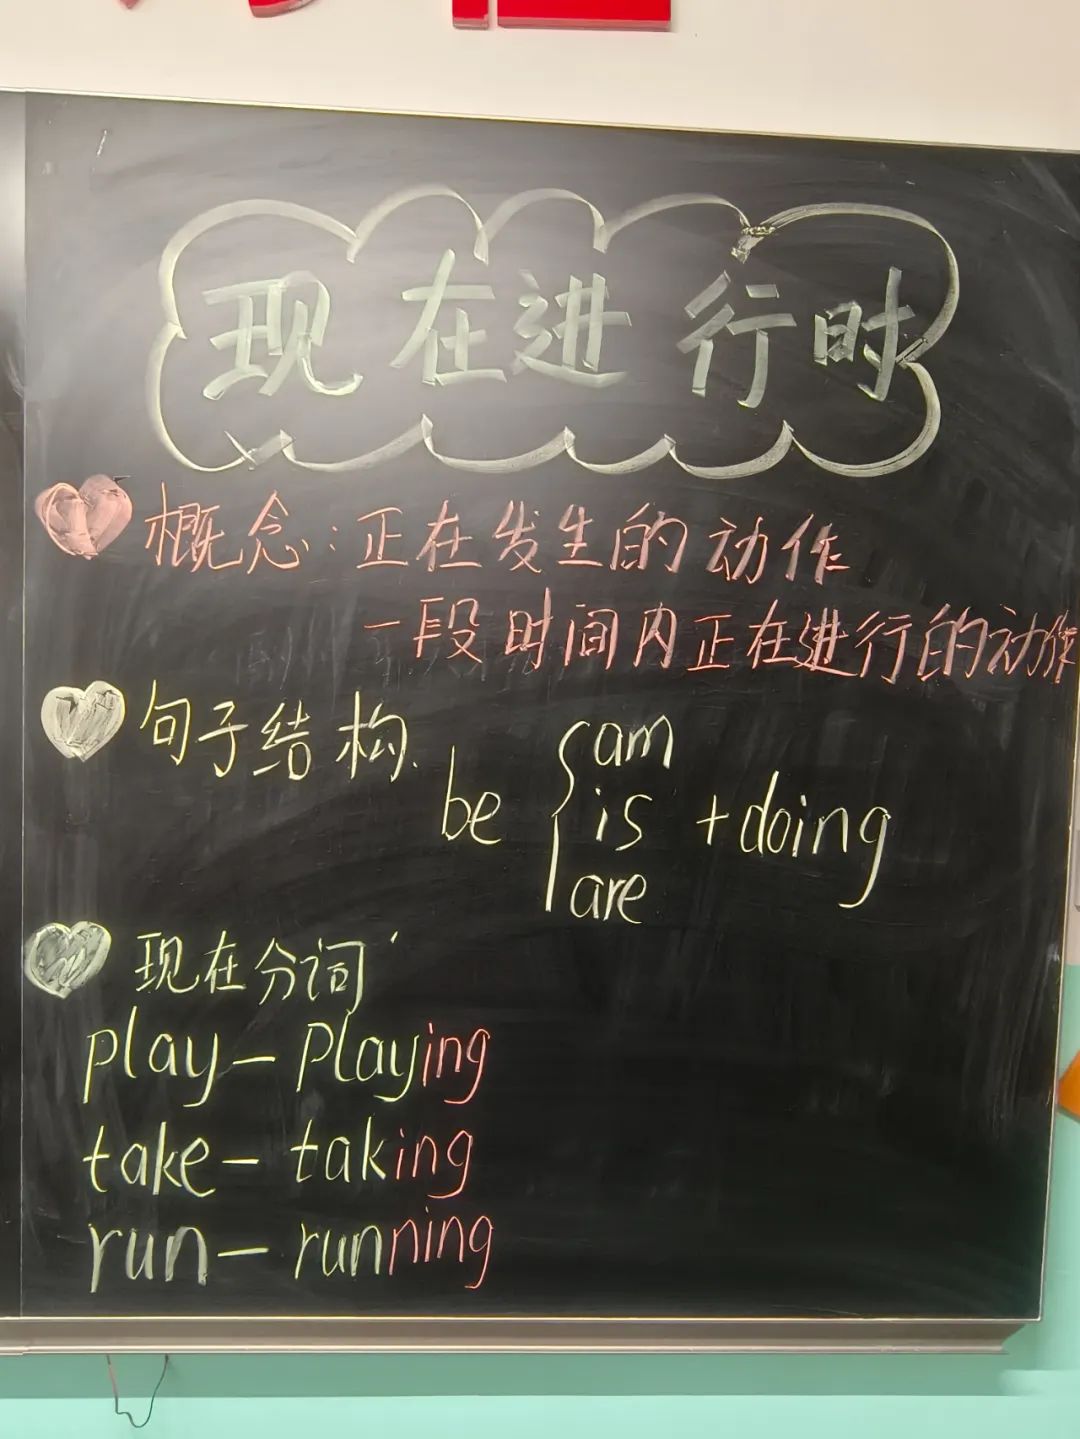 现在进行时
概念:正在发生的动作
一段时间内正在进行的动作
句子结构.
am
be is +doing
are
现在分词
play - Playing
take - taking
run - running